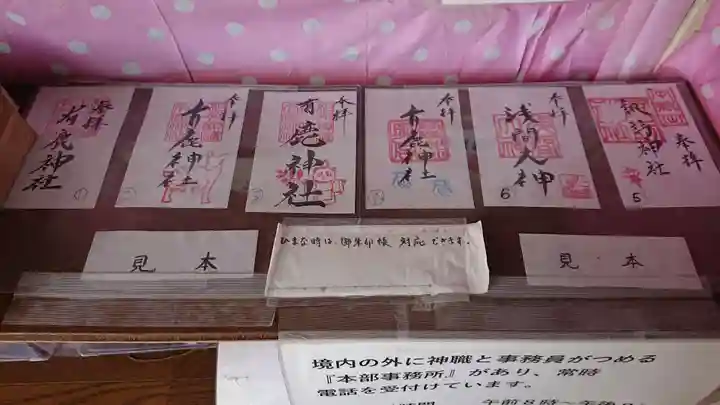 奉拝
有鹿神社
①
奉拝
有鹿神社
奉拝
有鹿神社
奉拝
有鹿神社
奉拝
浅間大神
6
奉拝
諏訪神社
5
見本
ひまな時は、御朱印帳 対応できます。
見本
境内の外に神職と事務員がつめる
『本部事務所』があり、常時
電話を受付けています。